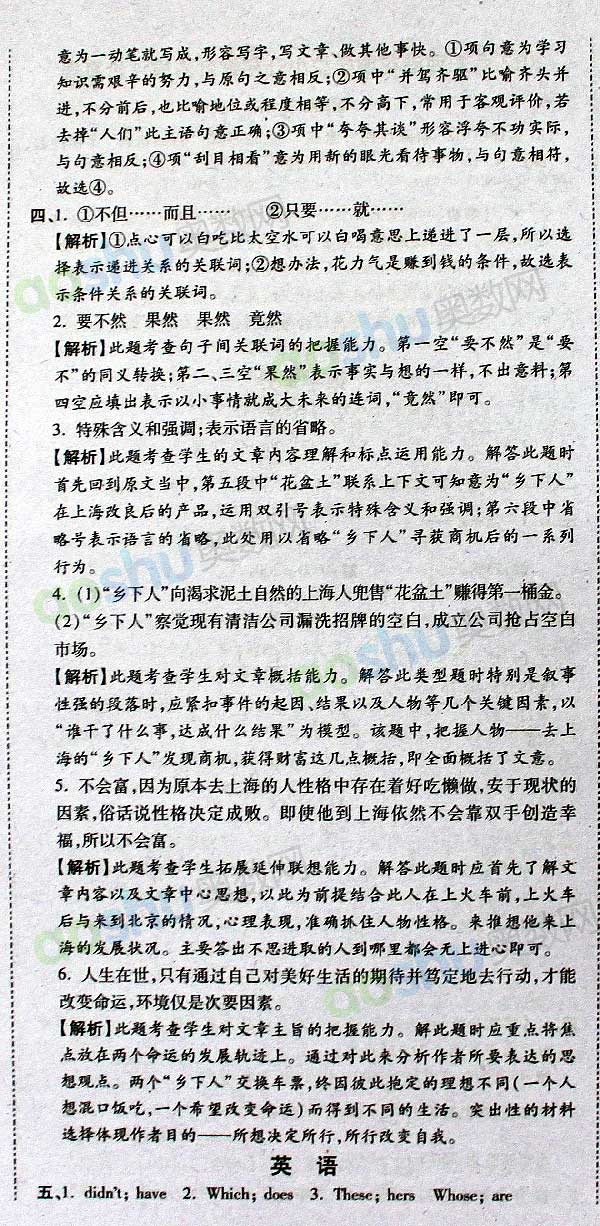 意为一动笔就写成,形容写字,写文章、做其他事快。①项句意为学习
知识需艰辛的努力,与原句之意相反;②项中“并驾齐驱”比喻齐头并
进,不分前后,也比喻地位或程度相等,不分高下,常用于客观评价,若
去掉“人们”此主语句意正确;③项中“夸夸其谈”形容浮夸不功实际,
与句意相反;④项“刮目相看”意为用新的眼光看待事物,与句意相符,
故选④。
四、1. ①不但……而且…… ②只要……就……
【解析】①点心可以白吃比太空水可以白喝意思上递进了一层,所以选
择表示递进关系的关联词;②想办法,花力气是赚到钱的条件,故选表
示条件关系的关联词。
2. 要不然 果然 果然 竟然
【解析】此题考查句子间关联词的把握能力。第一空“要不然”是“要
不”的同义转换;第二、三空“果然”表示事实与想的一样,不出意料;第
四空应填出表示以小事情就成大未来的连词,“竟然”即可。
3. 特殊含义和强调;表示语言的省略。
【解析】此题考查学生的文章内容理解和标点运用能力。解答此题时
首先回到原文当中,第五段中“花盆土”联系上下文可知意为“乡下人”
在上海改良后的产品,运用双引号表示特殊含义和强调;第六段中省
略号表示语言的省略,此处用以省略“乡下人”寻获商机后的一系列
行为。
4. (1)“乡下人”向渴求泥土自然的上海人兜售“花盆土”赚得第一桶金。
(2)“乡下人”察觉现有清洁公司漏洗招牌的空白,成立公司抢占空白
市场。
【解析】此题考查学生对文章概括能力。解答此类型题时特别是叙事
性强的段落时,应紧扣事件的起因、结果以及人物等几个关键因素,以
“谁干了什么事,达成什么结果”为模型。该题中,把握人物——去上
海的“乡下人”发现商机,获得财富这几点概括,即全面概括了文意。
5. 不会富,因为原本去上海的人性格中存在着好吃懒做,安于现状的
因素,俗话说性格决定成败。即使他到上海依然不会靠双手创造幸
福,所以不会富。
【解析】此题考查学生拓展延伸联想能力。解答此题时应首先了解文
章内容以及文章中心思想,以此为前提结合此人在上火车前,上火车
后与来到北京的情况,心理表现,准确抓住人物性格。来推想他来上
海的发展状况。主要答出不思进取的人到哪里都会无上进心即可。
6. 人生在世,只有通过自己对美好生活的期待并笃定地去行动,才能
改变命运,环境仅是次要因素。
【解析】此题考查学生对文章主旨的把握能力。解此题时应重点将焦
点放在两个命运的发展轨迹上。通过对此来分析作者所要表达的思
想观点。两个“乡下人”交换车票,终因彼此抱定的理想不同(一个人
想混口饭吃,一个希望改变命运)而得到不同的生活。突出性的材料
选择体现作者目的——所想决定所行,所行改变自我。
英 语
五、1. didn't; have 2. Which; does 3. These; hers Whose; are